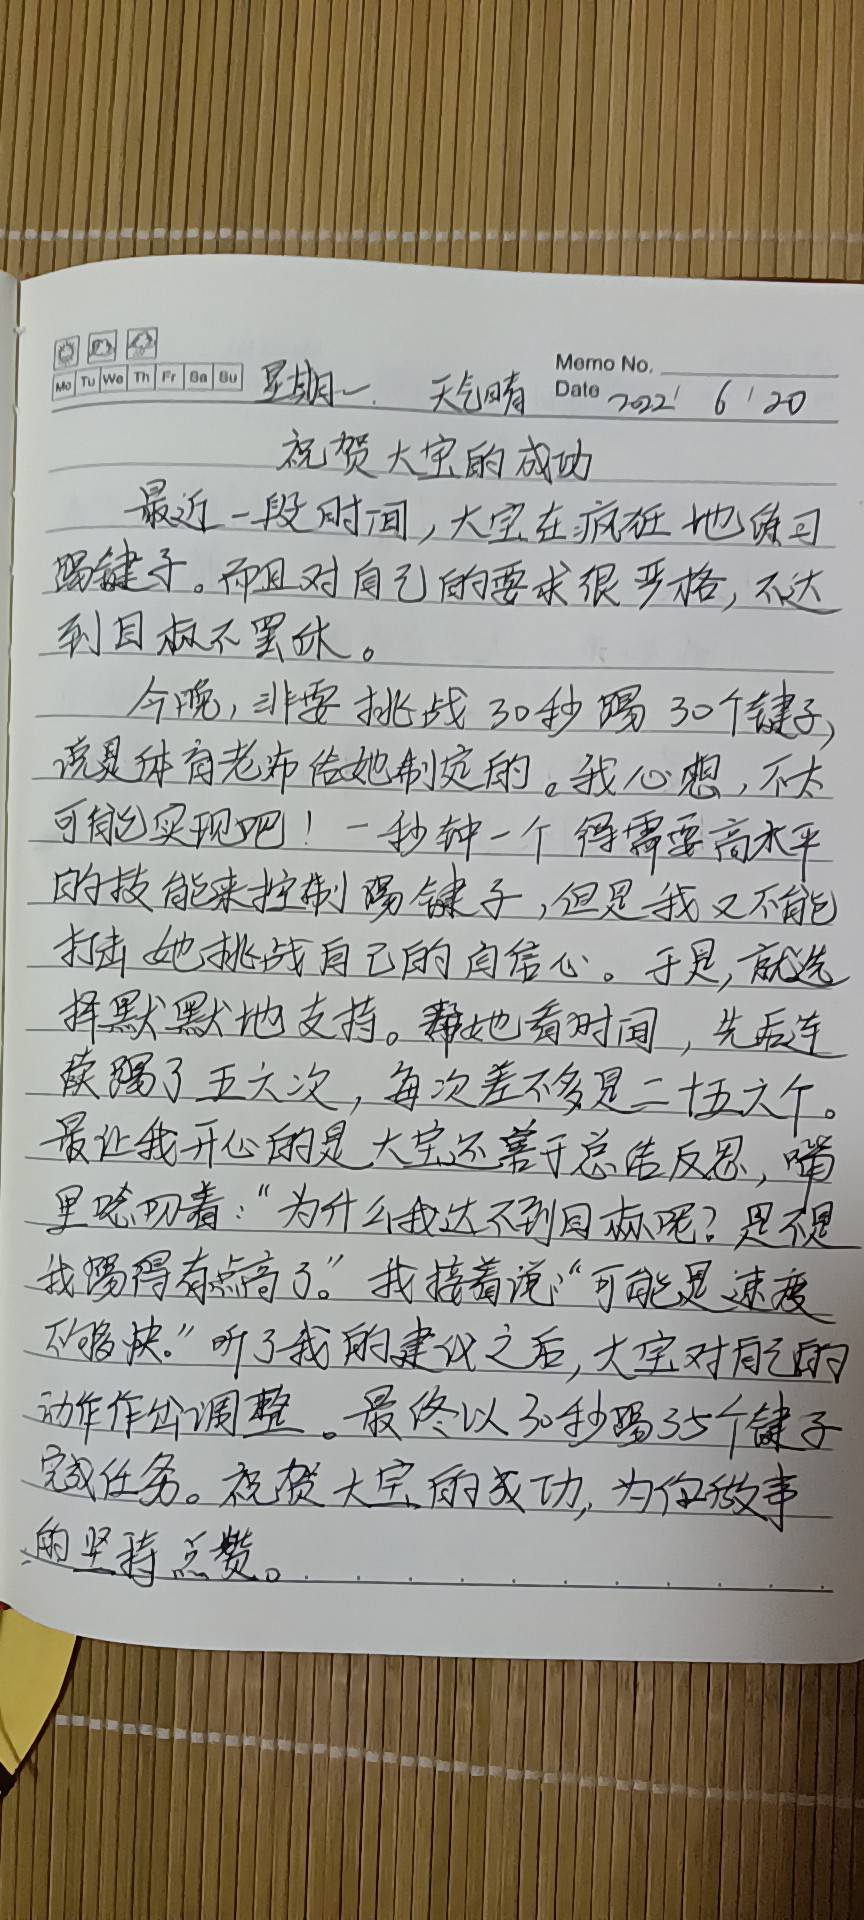 Memo No.
Mo Tu We Th Fr Sa Su 星期一. 天气晴 Date 2022 / 6 / 20
祝贺大宝的成功
最近一段时间，大宝在疯狂地练习
踢键子。而且对自己的要求很严格，不达
到目标不罢休。
今晚，非要挑战30秒踢30个键子，
说是体育老师给她制定的。我心想，不太
可能实现吧！一秒钟一个得需要高水平
的技能来控制踢键子，但是我又不能
打击她挑战自己的自信心。于是，就选
择默默地支持。帮她看时间，先后连
续踢了五六次，每次差不多是二十五六个。
最让我开心的是大宝还善于总结反思，嘴
里唸叨着：“为什么我达不到目标呢？是不是
我踢得有点高了。”我接着说：“可能是速度
不够快。”听了我的建议之后，大宝对自己的
动作作出调整。最终以30秒踢35个键子
完成任务。祝贺大宝的成功，为你做事
的坚持点赞。